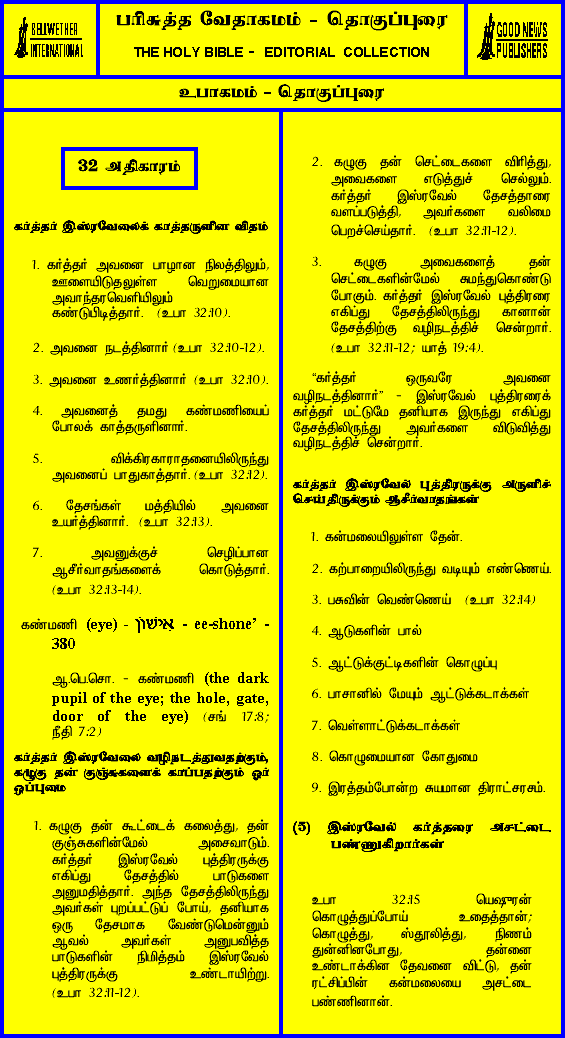 BELLWETHER
INTERNATIONAL
பரிசுத்த வேதாகமம் - தொகுப்புரை
THE HOLY BIBLE - EDITORIAL COLLECTION
GOOD NEWS
PUBLISHERS
உபாகமம் - தொகுப்புரை
32 அதிகாரம்
கர்த்தர் இஸ்ரவேலைக் காத்தருளின விதம்
1. கர்த்தர் அவனை பாழான நிலத்திலும்,
ஊளையிடுதலுள்ள வெறுமையான
அவாந்தரவெளியிலும்
கண்டுபிடித்தார். (உபா 32:10).
2. அவனை நடத்தினார் (உபா 32:10-12).
3. அவனை உணர்த்தினார் (உபா 32:10).
4. அவனைத் தமது கண்மணியைப்
போலக் காத்தருளினார்.
5. விக்கிரகாராதனையிலிருந்து
அவனைப் பாதுகாத்தார். (உபா 32:12).
6. தேசங்கள் மத்தியில் அவனை
உயர்த்தினார். (உபா 32:13).
7. அவனுக்குச் செழிப்பான
ஆசீர்வாதங்களைக் கொடுத்தார்.
(உபா 32:13-14).
கண்மணி (eye) - אישון - ee-shone' -
380
ஆ.பெ.சொ. - கண்மணி (the dark
pupil of the eye; the hole, gate,
door of the eye) (சங் 17:8;
நீதி 7:2)
கர்த்தர் இஸ்ரவேலை வழிநடத்துவதற்கும்,
கழுகு தன் குஞ்சுகளைக் காப்பதற்கும் ஓர்
ஒப்புமை
1. கழுகு தன் கூட்டைக் கலைத்து, தன்
குஞ்சுகளின்மேல் அசைவாடும்.
கர்த்தர் இஸ்ரவேல் புத்திரருக்கு
எகிப்து தேசத்தில் பாடுகளை
அனுமதித்தார். அந்த தேசத்திலிருந்து
அவர்கள் புறப்பட்டுப் போய், தனியாக
ஒரு தேசமாக வேண்டுமென்னும்
ஆவல் அவர்கள் அனுபவித்த
பாடுகளின் நிமித்தம் இஸ்ரவேல்
புத்திரருக்கு உண்டாயிற்று.
(உபா 32:11-12).
2. கழுகு தன் செட்டைகளை விரித்து,
அவைகளை எடுத்துச் செல்லும்.
கர்த்தர் இஸ்ரவேல் தேசத்தாரை
வளப்படுத்தி, அவர்களை வலிமை
பெறச்செய்தார். (உபா 32:11-12).
3. கழுகு அவைகளைத் தன்
செட்டைகளின்மேல் சுமந்துகொண்டு
போகும். கர்த்தர் இஸ்ரவேல் புத்திரரை
எகிப்து தேசத்திலிருந்து கானான்
தேசத்திற்கு வழிநடத்திச் சென்றார்.
(உபா 32:11-12; யாத் 19:4).
“கர்த்தர் ஒருவரே அவனை
வழிநடத்தினார்” - இஸ்ரவேல் புத்திரரைக்
கர்த்தர் மட்டுமே தனியாக இருந்து எகிப்து
தேசத்திலிருந்து அவர்களை விடுவித்து
வழிநடத்திச் சென்றார்.
கர்த்தர் இஸ்ரவேல் புத்திரருக்கு அருளிச்
செய்திருக்கும் ஆசீர்வாதங்கள்
1. கன்மலையிலுள்ள தேன்.
2. கற்பாறையிலிருந்து வடியும் எண்ணெய்.
3. பசுவின் வெண்ணெய் (உபா 32:14)
4. ஆடுகளின் பால்
5. ஆட்டுக்குட்டிகளின் கொழுப்பு
6. பாசானில் மேயும் ஆட்டுக்கடாக்கள்
7. வெள்ளாட்டுக்கடாக்கள்
8. கொழுமையான கோதுமை
9. இரத்தம்போன்ற சுயமான திராட்சரசம்.
(5) இஸ்ரவேல் கர்த்தரை அசட்டை
பண்ணுகிறார்கள்
உபா 32:15 யெஷுரன்
கொழுத்துப்போய் உதைத்தான்;
கொழுத்து, ஸ்தூலித்து, நிணம்
துன்னினபோது, தன்னை
உண்டாக்கின தேவனை விட்டு, தன்
ரட்சிப்பின் கன்மலையை அசட்டை
பண்ணினான்.